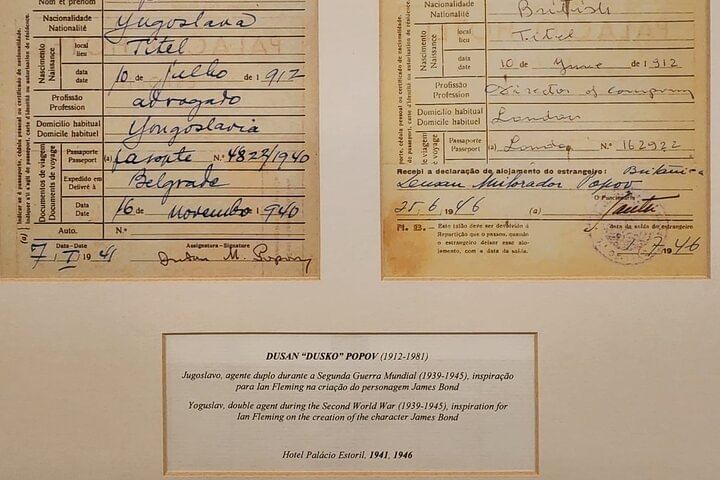 Nom et prénom
Nacionalidade
Nationalité
Yugoslava
Nascimento
Naissance
local
lieu
Titel
data
date
10 de julho de 1912
Profissão
Profession
advogado
Domicílio habitual
Domicile habituel
Yougoslavia
Documentos de viagem
Documents de voyage
Passaporte
Passeport
N.º 4822/1940
Expedido em
Delivré à
Belgrade
data
date
16 de novembro 1940
Auto.
N.º
Data-Date
Assignatura-Signature
7 / I / 1941
Dusan M. Popov
Indicar se é passaporte, cédula pessoal ou certificado de nacionalidade.
(a)
Nacionalidade
Nationalité
British
Nascimento
Naissance
local
lieu
Titel
data
date
10 de de 1912
Profissão
Profession
Director of company
Domicílio habitual
Domicile habituel
London
Passaporte
Passeport
(a) London N.º 162922
Recebi a declaração de alojamento do estrangeiro:
Popov
25. 6 / 1946 (a)
O Funcionário
N. B. — Este talão deve ser devolvido á
Repartição que o passou, quando
o estrangeiro deixar seu alo-
jamento, com a data da saída.
data da saída do estrangeiro
7 1946
DUSAN “DUSKO” POPOV (1912-1981)
Jugoslavo, agente duplo durante a Segunda Guerra Mundial (1939-1945), inspiração
para Ian Fleming na criação do personagem James Bond
Yoguslav, double agent during the Second World War (1939-1945), inspiration for
Ian Fleming on the creation of the character James Bond
Hotel Palácio Estoril, 1941, 1946